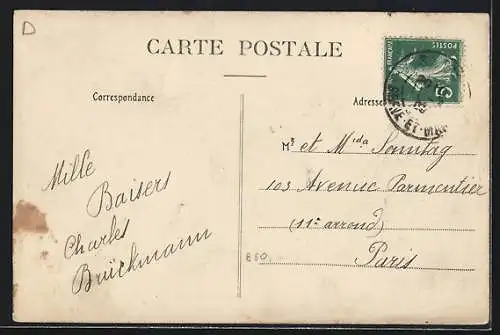 D
CARTE POSTALE
Correspondance
Adresse
POSTES
5
Mille
Baisers
Charles
Brückmann
Mr et Mme Sonntag
103 Avenue Parmentier
(11e arrond)
Paris
850